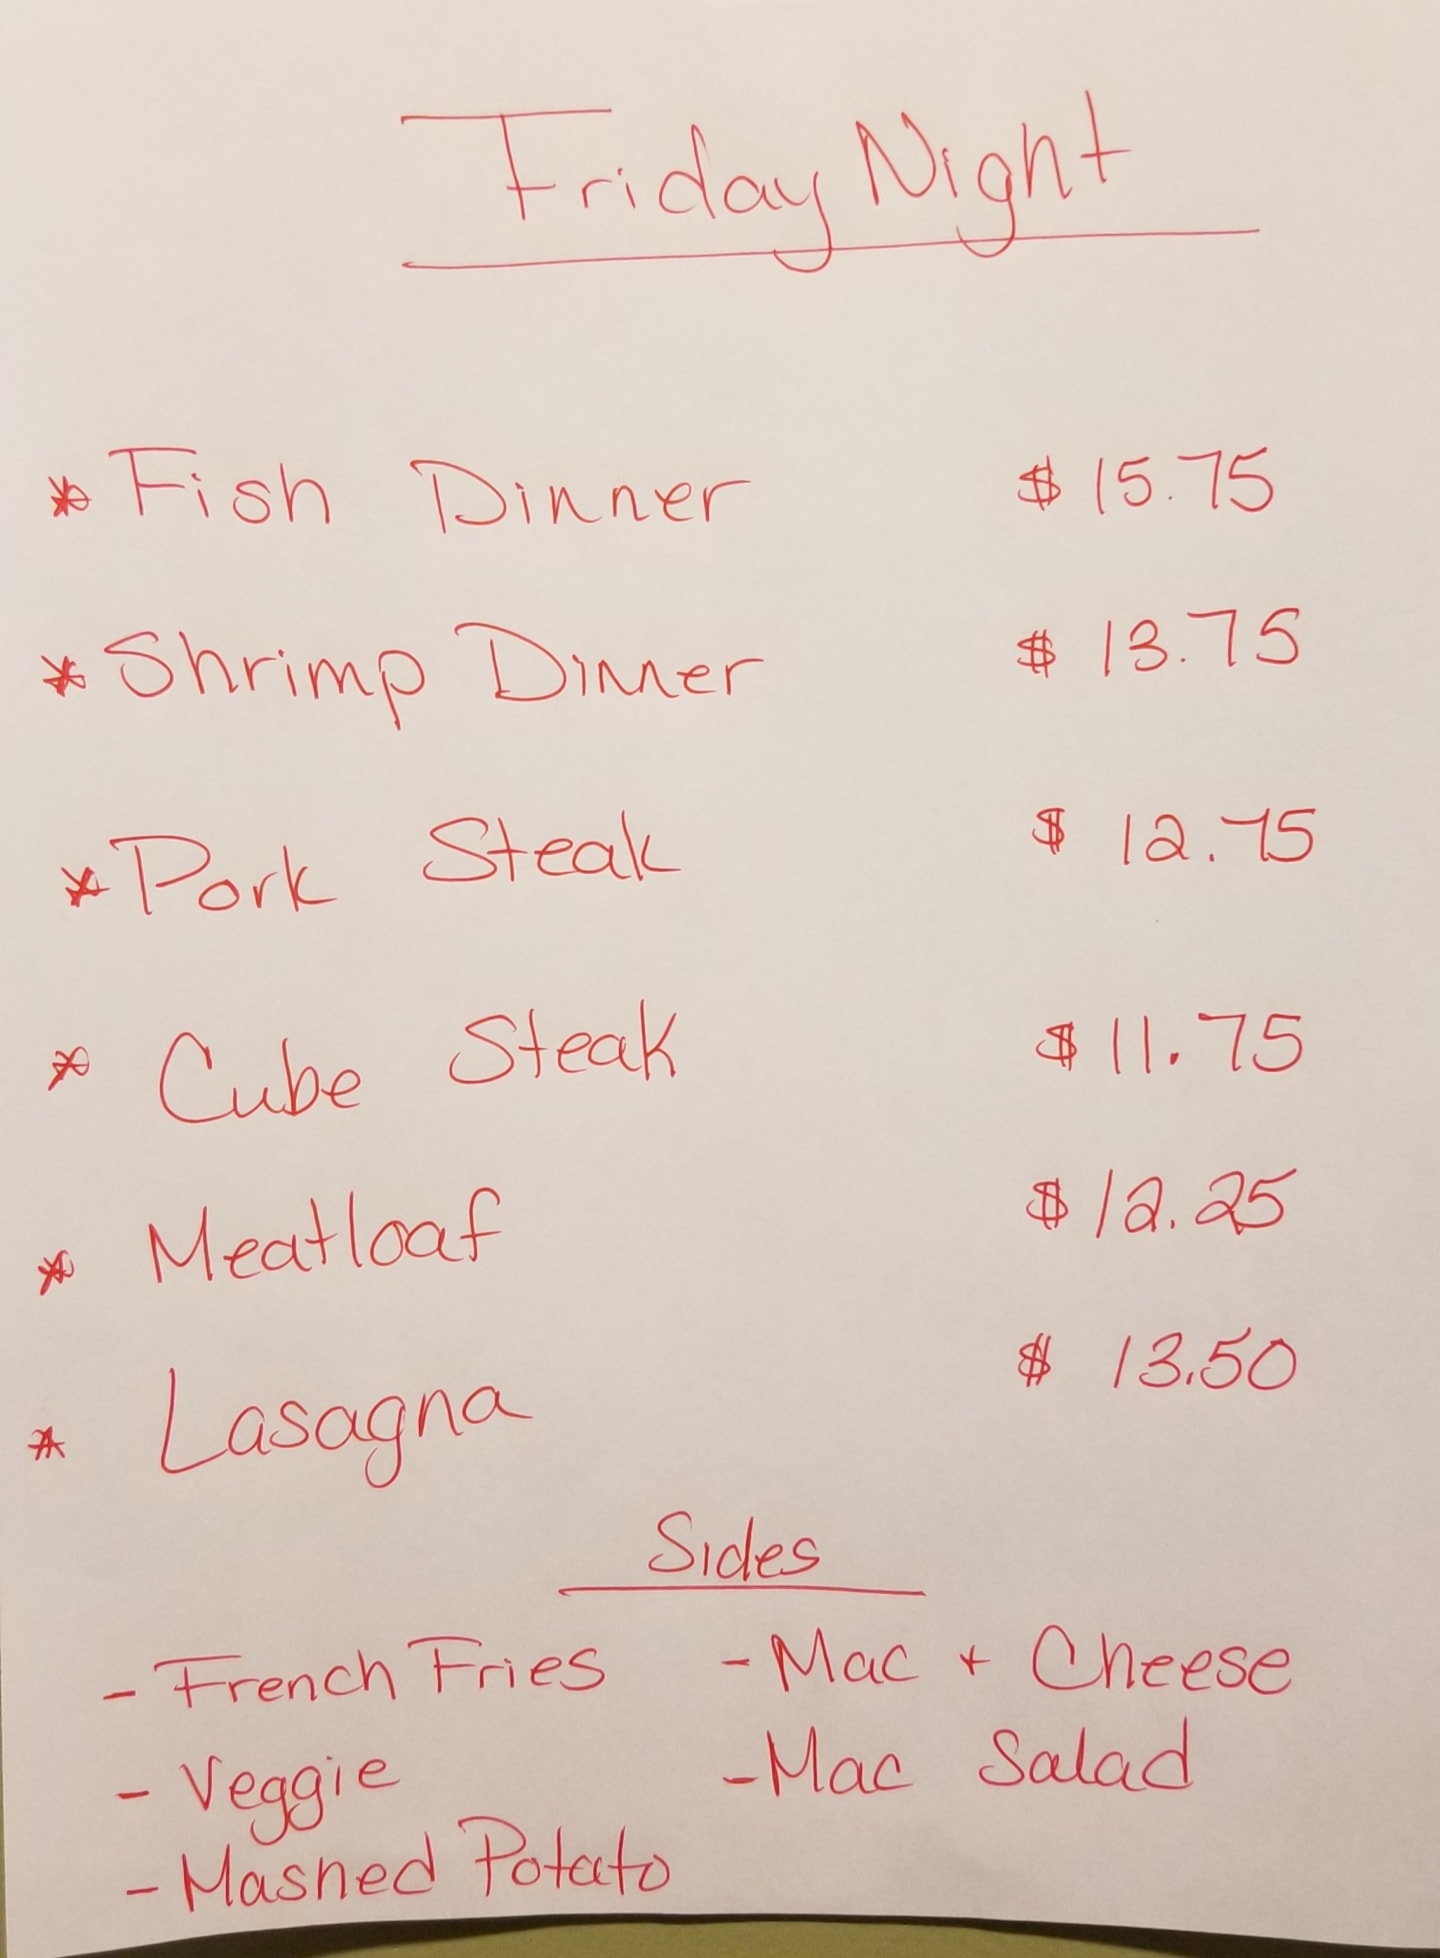 Friday Night
* Fish Dinner $15.75
* Shrimp Dinner $13.75
* Pork Steak $12.75
* Cube Steak $11.75
* Meatloaf $12.25
* Lasagna $13.50
Sides
- French Fries - Mac + Cheese
- Veggie - Mac Salad
- Mashed Potato